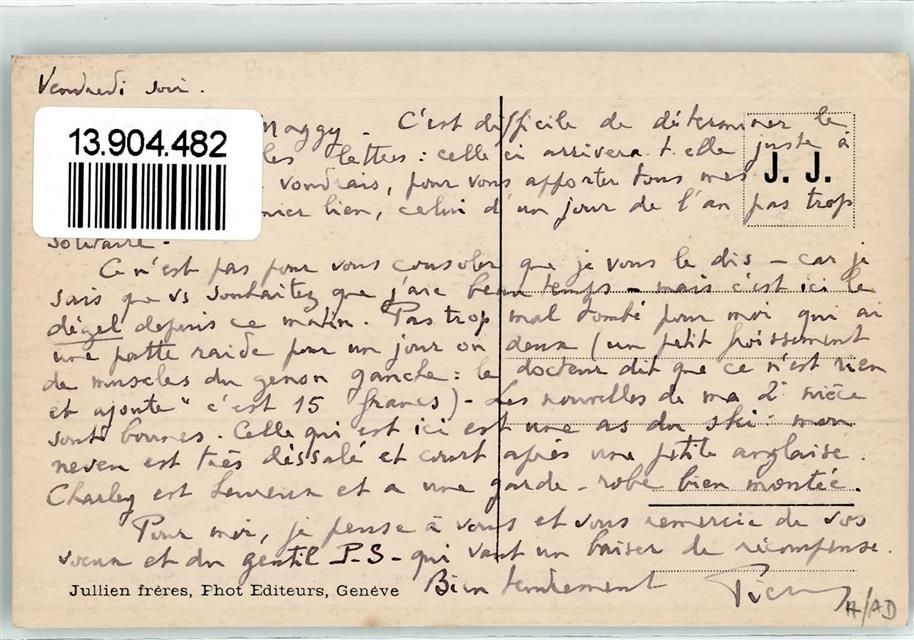 Vendredi soir.
13.904.482
Maggy - C'est difficile de déterminer le
les lettres : celle ci arrivera t. elle juste à
vondrais, pour vous apporter tous mes
J. J.
lien, celui d'un jour de l'an pas trop
solitaire.
Ce n'est pas pour vous consoler que je vous le dis - car je
sais que vs souhaitez que j'aie beau temps - mais c'est ici le
dégel depuis ce matin. Pas trop mal tombé pour moi qui ai
une patte raide pour un jour ou deux (un petit froissement
de muscles du genou gauche : le docteur dit que ce n'est rien
et ajoute "c'est 15 francs) - Les nouvelles de ma 2e nièce
sont bonnes. Celle qui est ici est une as du ski : mon
neveu est très déssalé et court après une petite anglaise.
Charley est heureux et a une garde-robe bien montée.
Pour moi, je pense à vous et vous remercie de vos
voeux et du gentil P-S- qui vaut un baiser de récompense.
Bien tendrement
Jullien frères, Phot Editeurs, Genève
A/AD